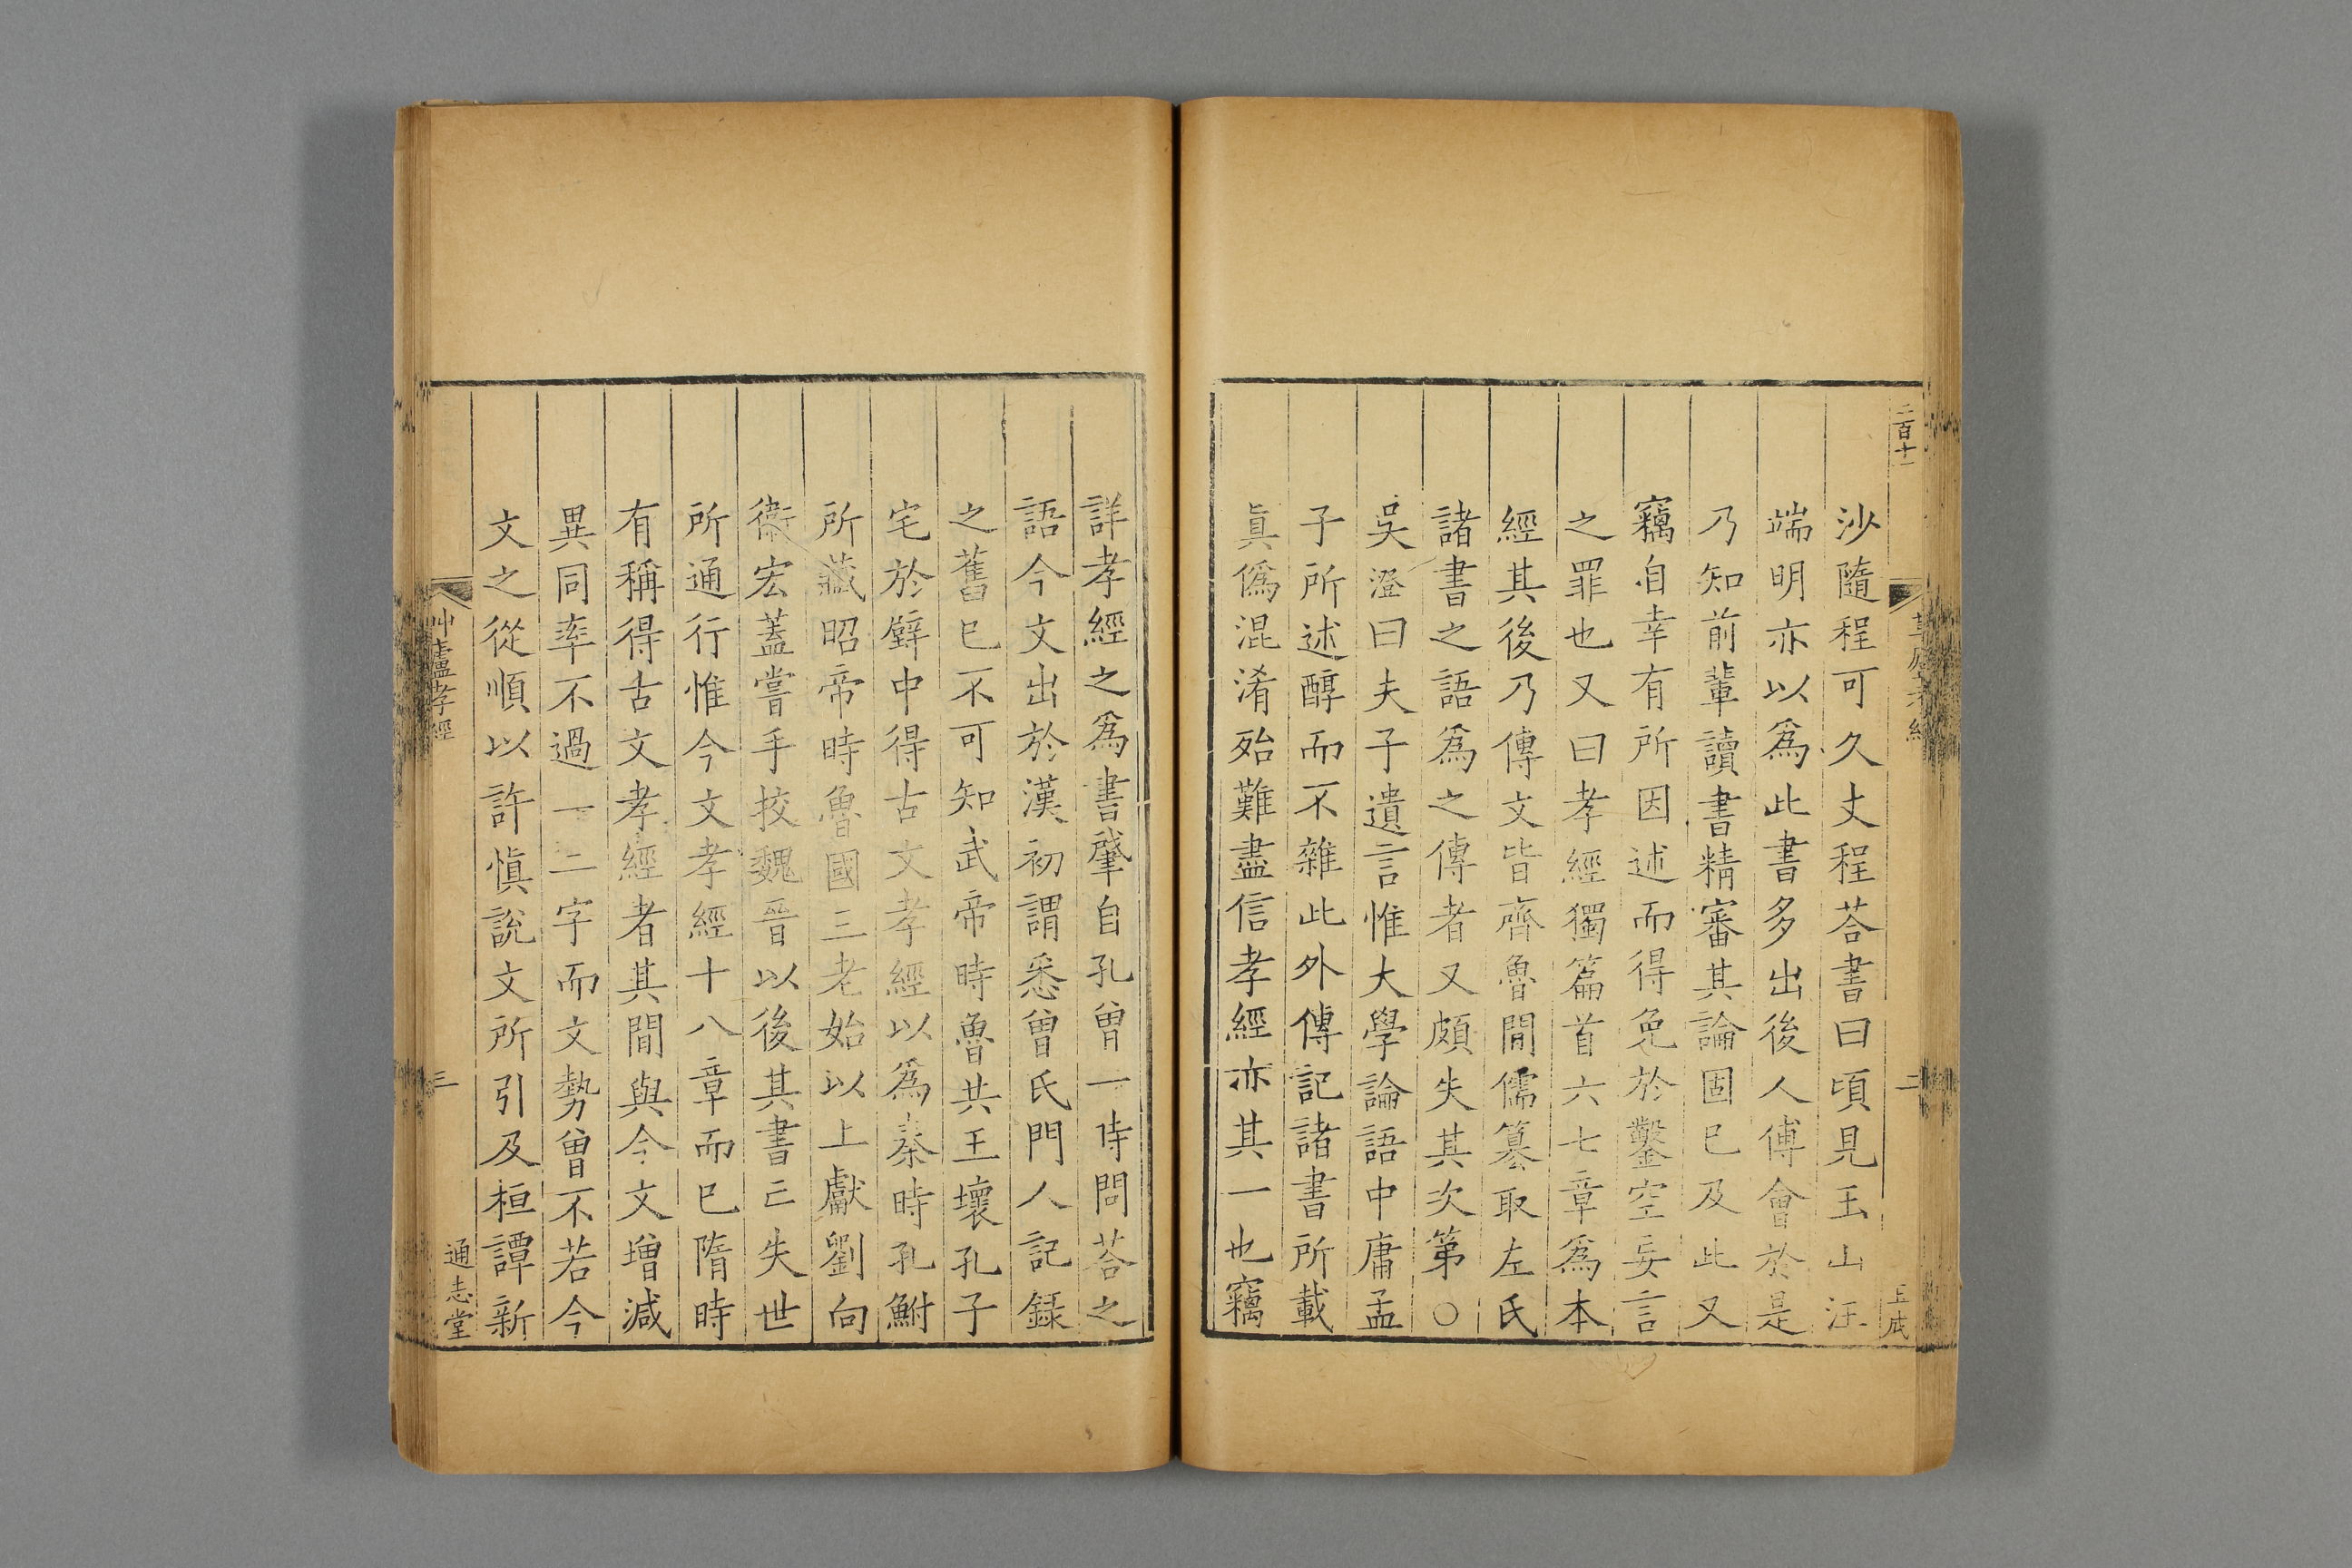 二百十一
二
沙隨程可久丈程荅書曰頃見玉山汪
端明亦以爲此書多出後人傅會於是
乃知前輩讀書精審其論固已及此又
竊自幸有所因述而得免於鑿空妄言
之罪也又曰孝經獨篇首六七章爲本
經其後乃傳文皆齊魯間儒纂取左氏
諸書之語爲之傳者又頗失其次第○
吳澄曰夫子遺言惟大學論語中庸孟
子所述醇而不雜此外傳記諸書所載
眞僞混淆殆難盡信孝經亦其一也竊
詳孝經之爲書肇自孔曾一時問荅之
語今文出於漢初謂悉曾氏門人記錄
之舊已不可知武帝時魯共王壞孔子
宅於壁中得古文孝經以爲秦時孔鮒
所藏昭帝時魯國三老始以上獻劉向
衞宏蓋嘗手挍魏晉以後其書亡失世
所通行惟今文孝經十八章而已隋時
有稱得古文孝經者其間與今文增減
異同率不過一二字而文勢曾不若今
文之從順以許愼說文所引及桓譚新
廬孝經
三
通志堂